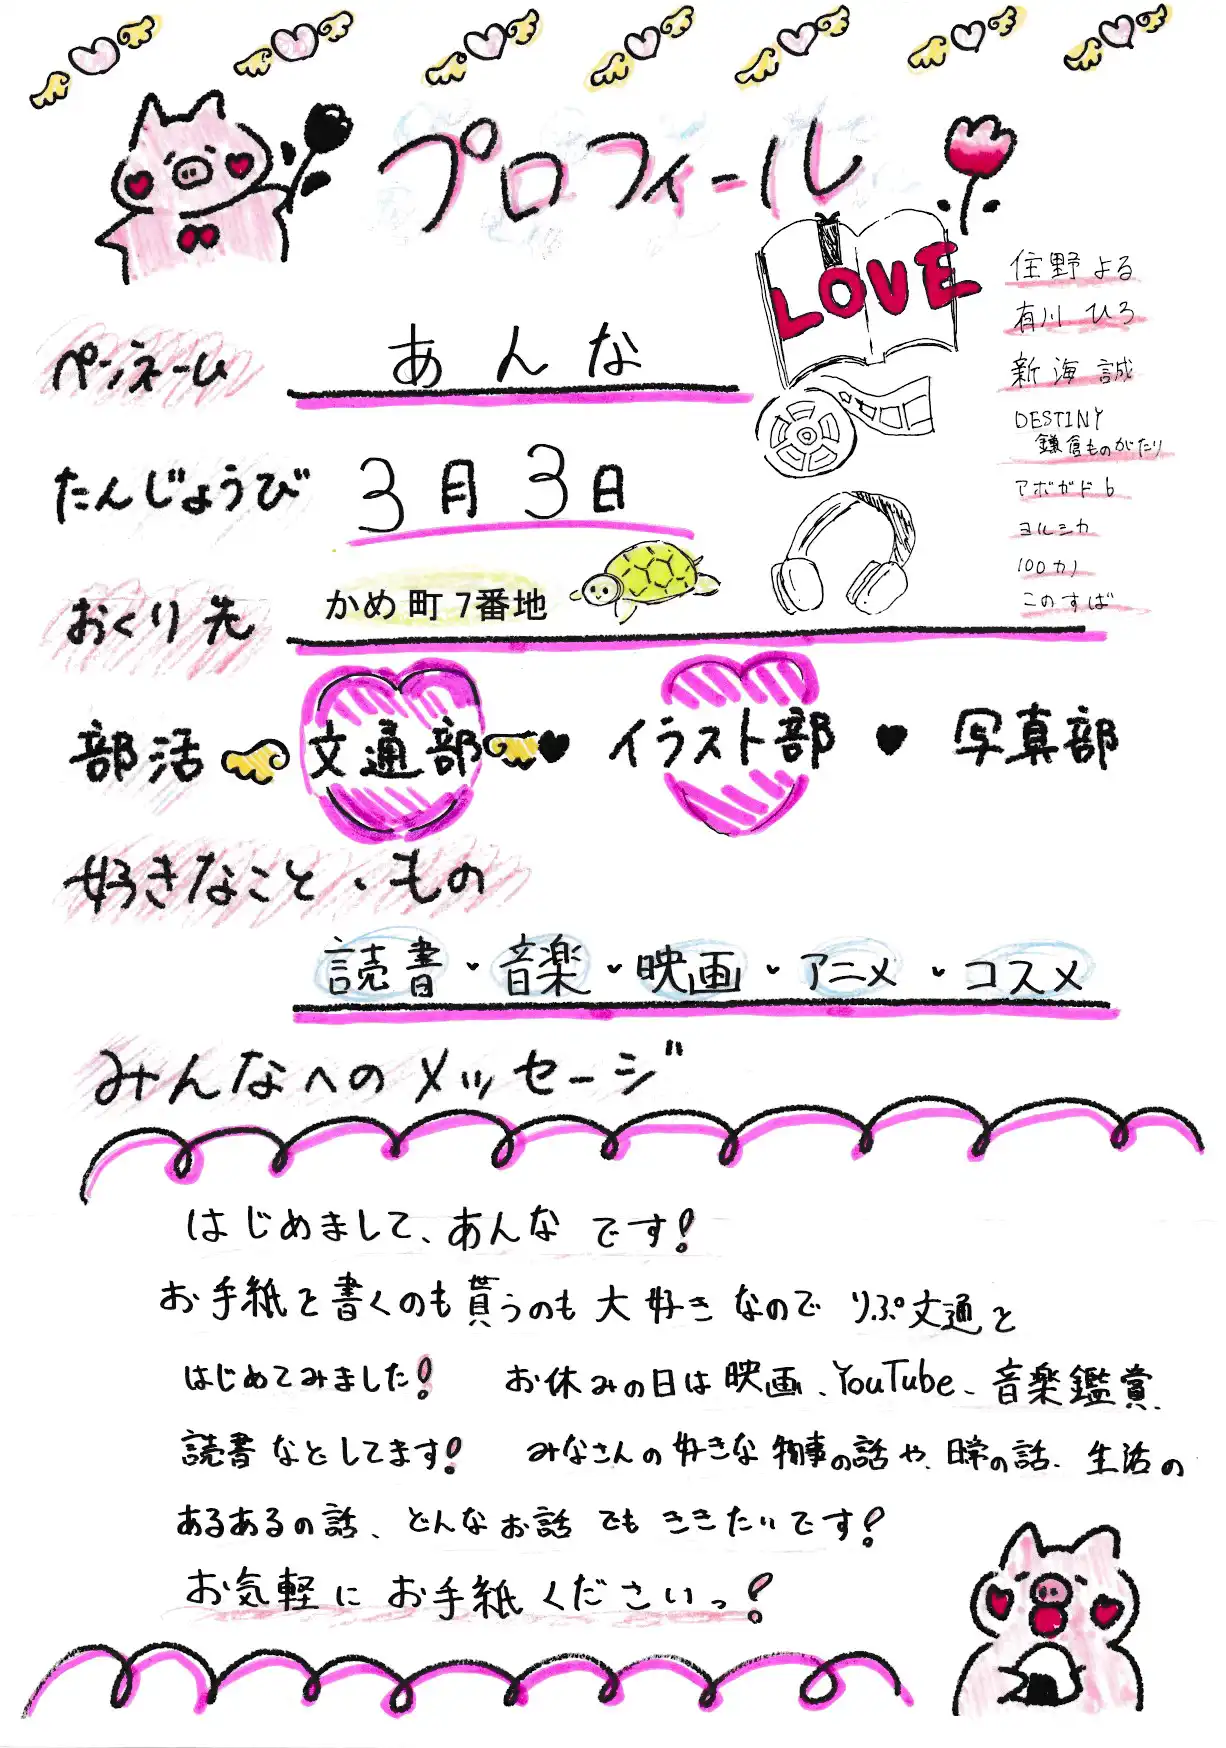 プロフィール
LOVE
住野よる
有川ひろ
新海誠
DESTINY
鎌倉ものがたり
アボガド6
ヨルシカ
100カノ
このすば
ペンネーム あんな
たんじょうび 3月3日
おくり先 かめ町7番地
部活 文通部 イラスト部 写真部
好きなこと・もの
読書・音楽・映画・アニメ・コスメ
みんなへのメッセージ
はじめまして、あんなです!
お手紙を書くのも貰うのも大好きなので りぷ文通を
はじめてみました! お休みの日は映画、YouTube、音楽鑑賞、
読書などしてます! みなさんの好きな物事の話や、日常の話、生活の
あるあるの話、どんなお話でもききたいです!
お気軽にお手紙くださいっ!